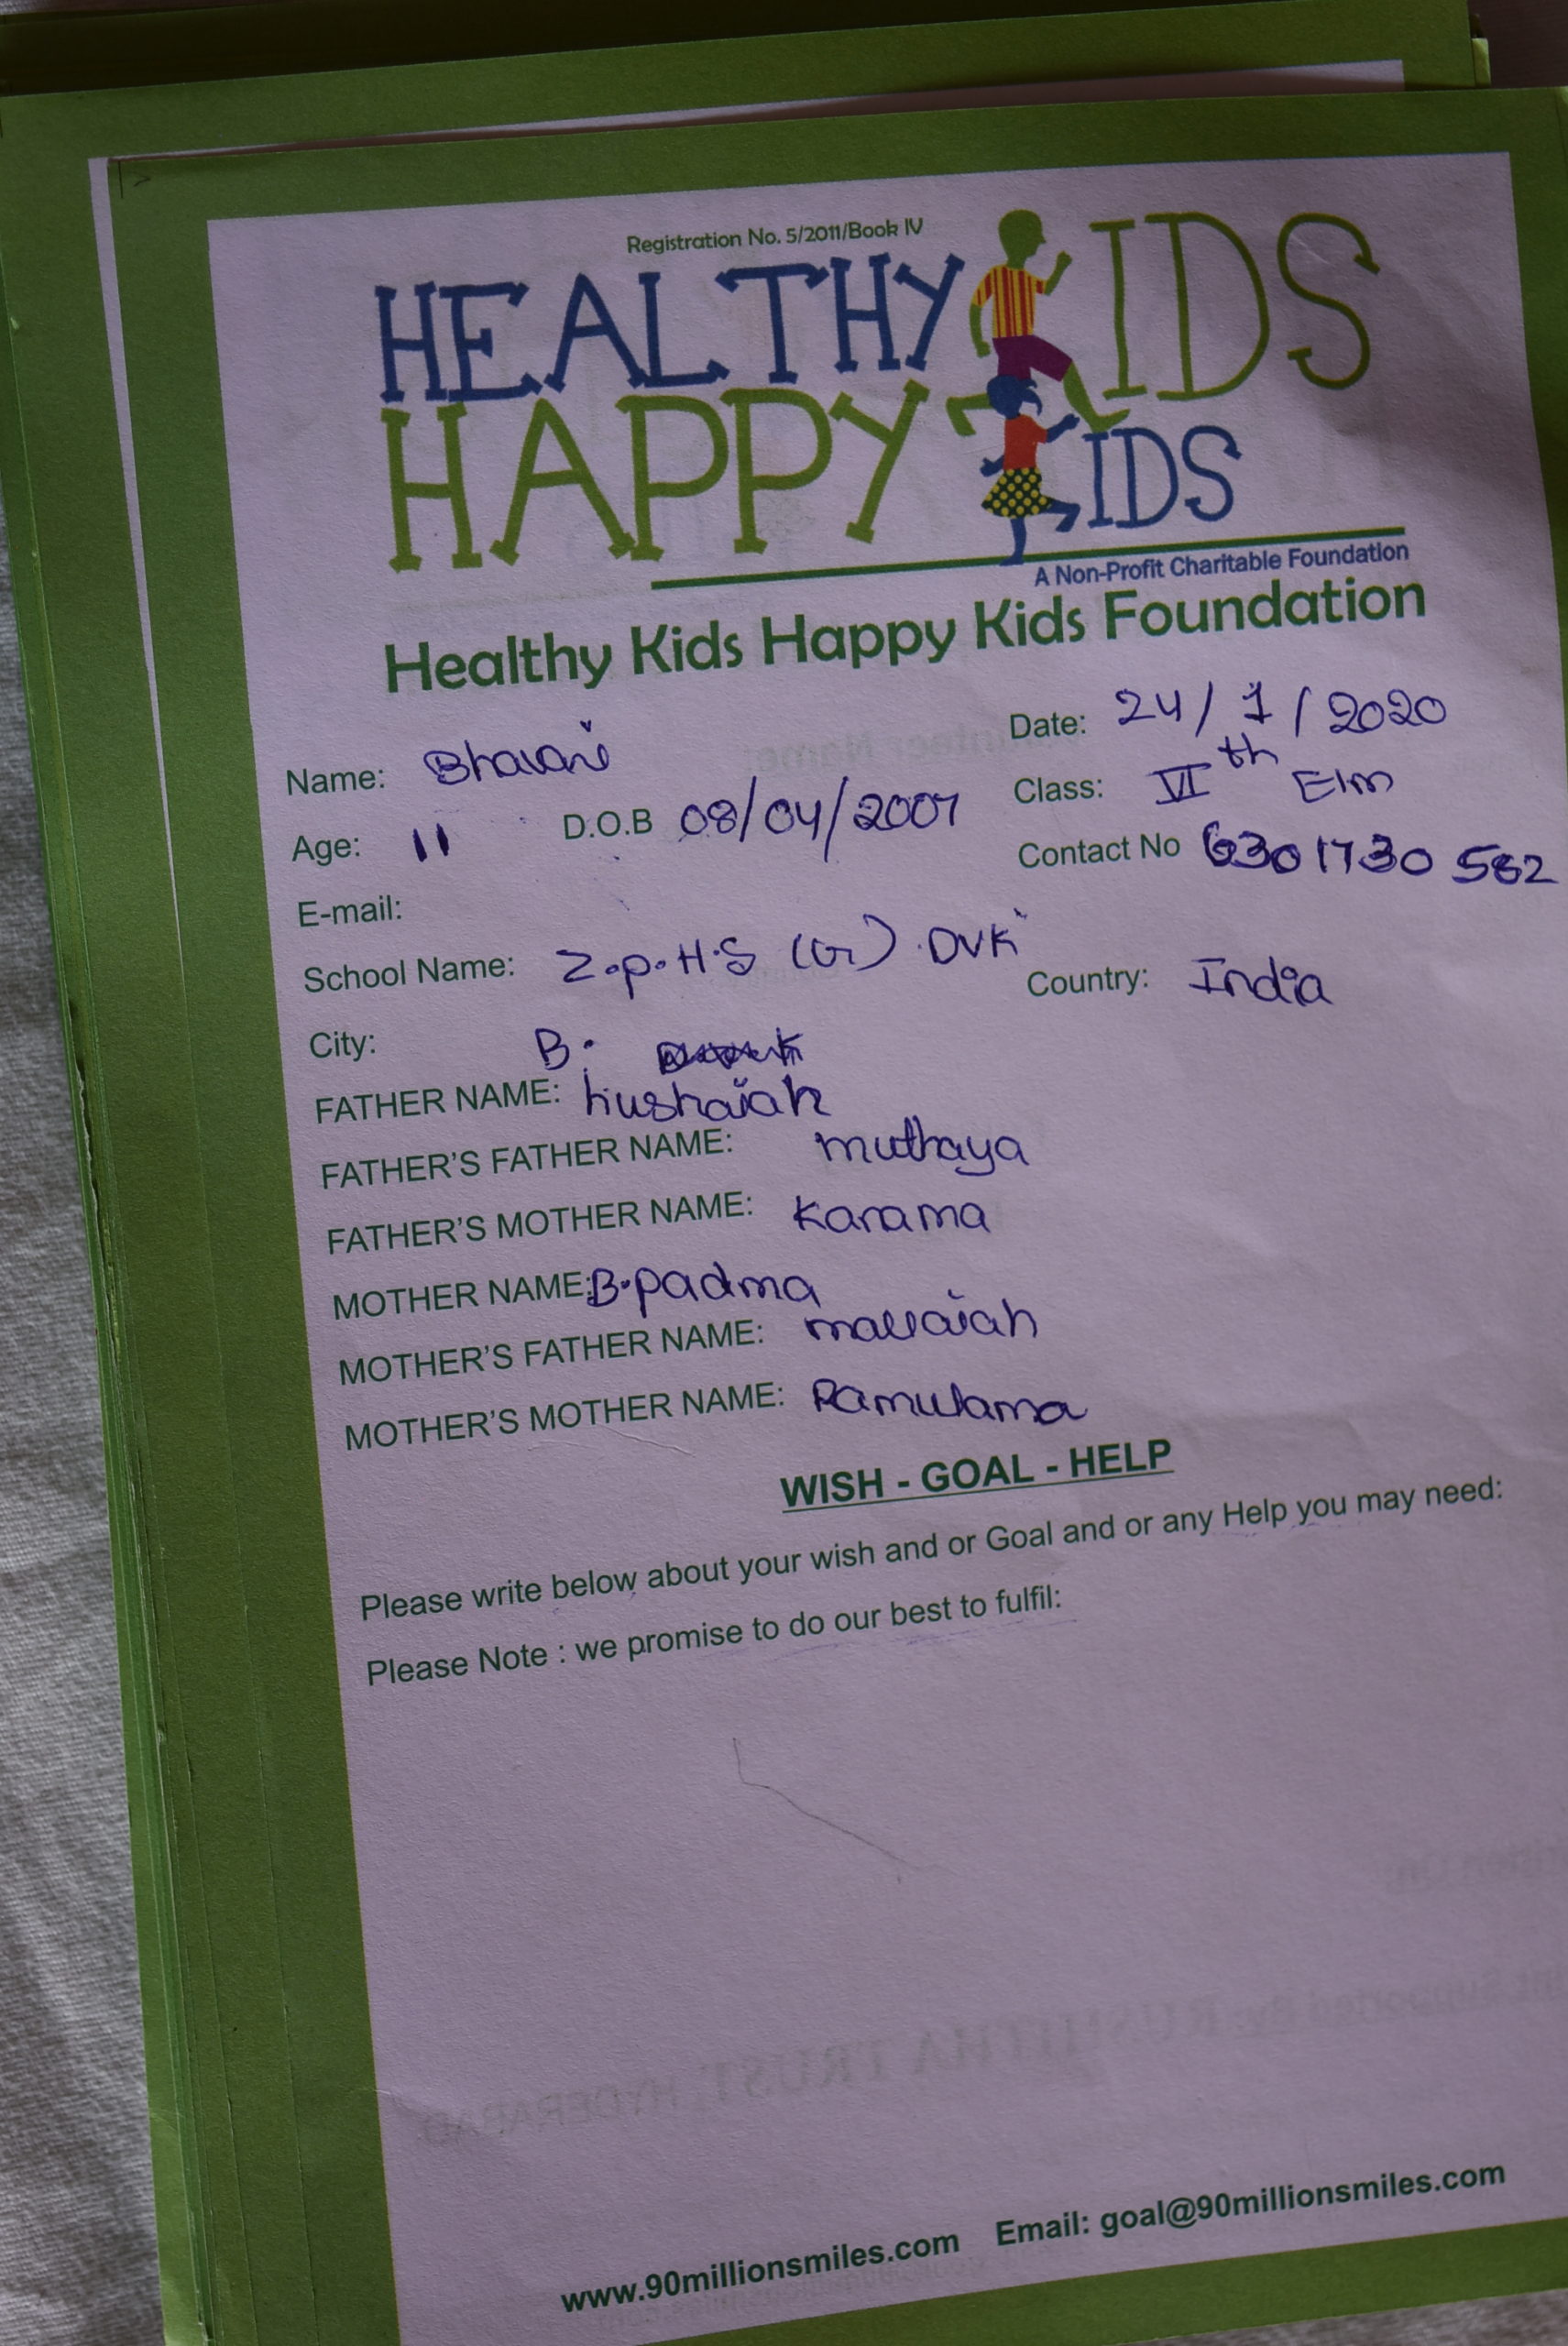 Registration No. 5/2011/Book IV
HEALTHY KIDS
HAPPY KIDS
A Non-Profit Charitable Foundation
Healthy Kids Happy Kids Foundation
Name: Bhavani Date: 24/1/2020
Age: 11 D.O.B 08/04/2007 Class: VIth E/m
E-mail: Contact No 6301730582
School Name: Z.P.H.S (G) DVK
City: B. Country: India
FATHER NAME: kushaiah
FATHER'S FATHER NAME: muthaya
FATHER'S MOTHER NAME: Karama
MOTHER NAME: B.Padma
MOTHER'S FATHER NAME: mallaiah
MOTHER'S MOTHER NAME: Ramulama
WISH - GOAL - HELP
Please write below about your wish and or Goal and or any Help you may need:
Please Note : we promise to do our best to fulfil:
www.90millionsmiles.com Email: goal@90millionsmiles.com